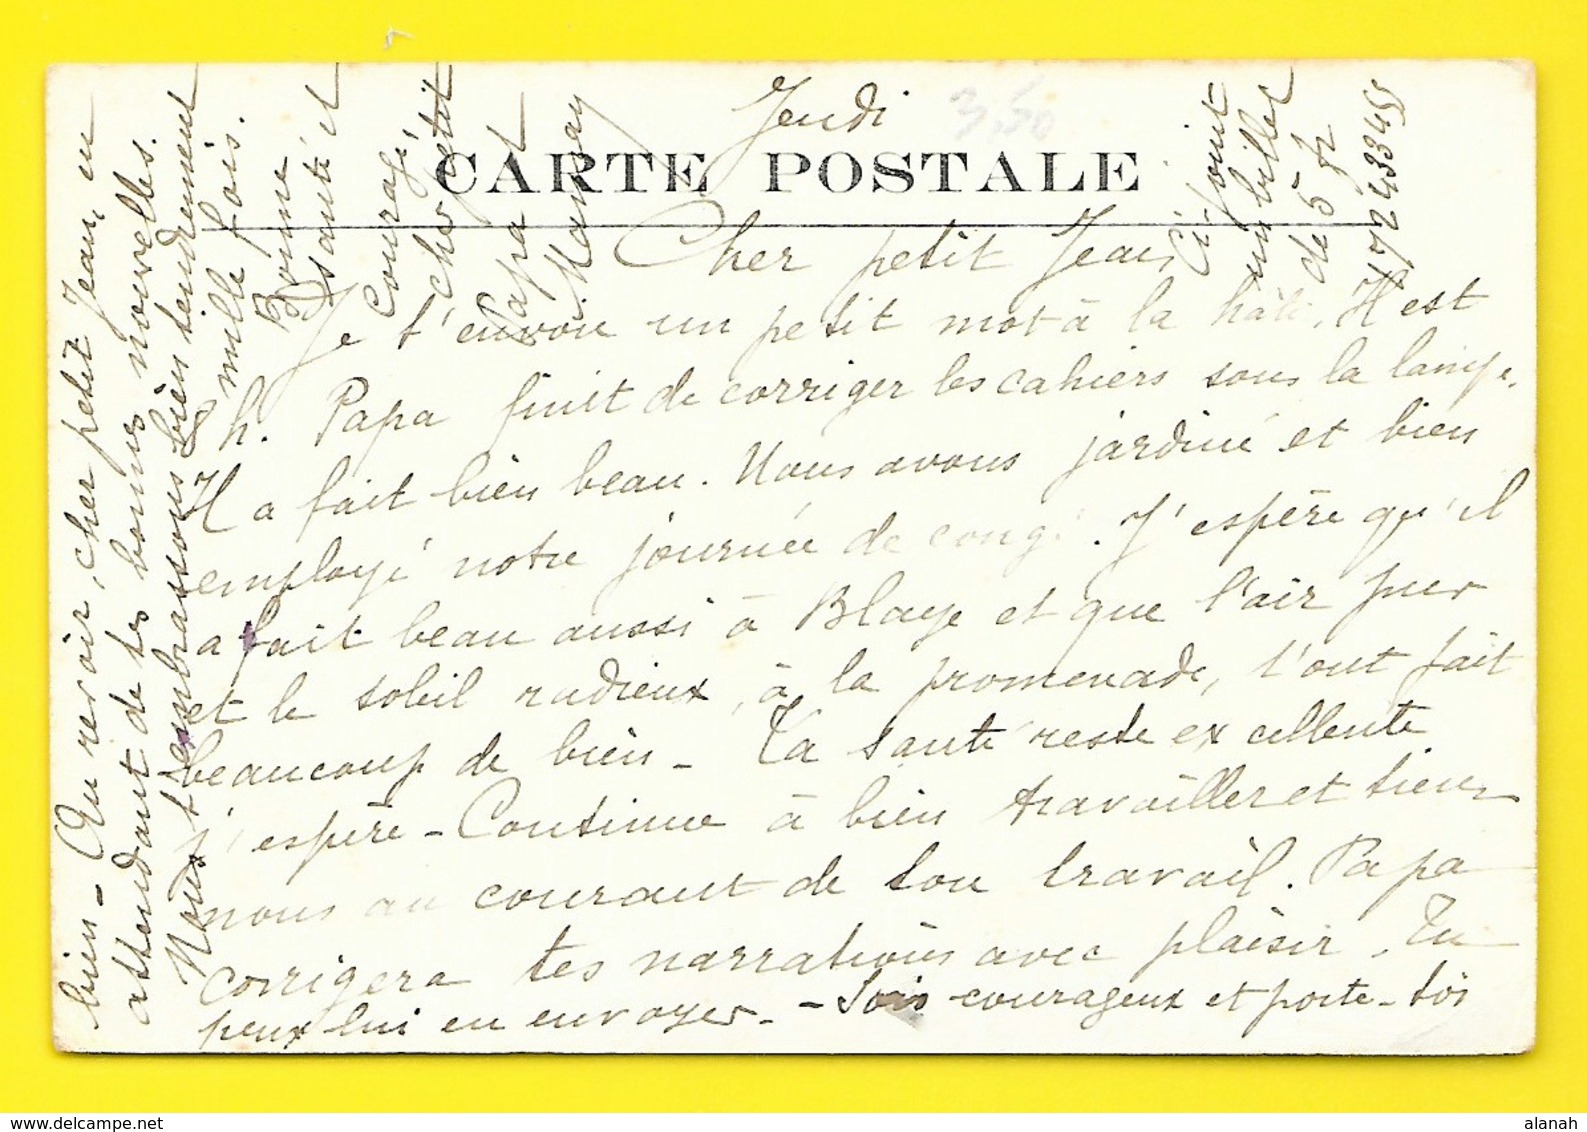 Jeudi
3,50
CARTE POSTALE
Cher petit Jean,
Je t'envoie un petit mot à la hâte. Il est
8 h. Papa finit de corriger les cahiers sous la lampe.
Il a fait bien beau. Nous avons jardiné et bien
employé notre journée de congé. J'espère qu'il
a fait beau aussi à Blaye et que l'air pur
et le soleil radieux, à la promenade, t'ont fait
beaucoup de bien - Ta santé reste excellente
j'espère - Continue à bien travailler et tiens
nous au courant de ton travail. Papa
corrigera tes narrations avec plaisir. Tu
peux lui en envoyer. - Sois courageux et porte-toi
bien - Au revoir, cher petit Jean, en
attendant de tes bonnes nouvelles.
Nous t'embrassons bien tendrement
mille fois.
Bonne
santé et
courage
cher petit
Papa et
Maman
Ci-joint
un billet
de 5 f
172433455
alanah